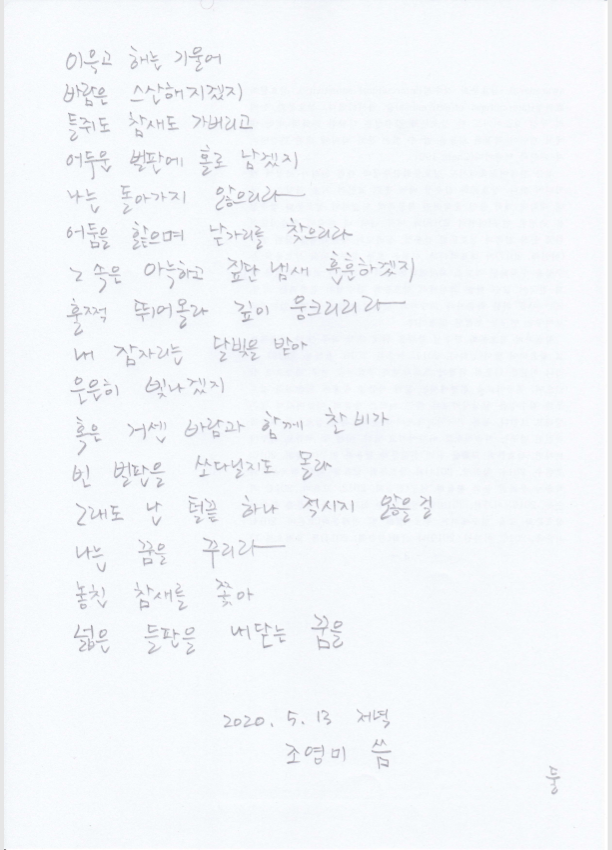 이윽고 해는 기울어
바람은 스산해지겠지
들쥐도 참새도 가버리고
어두운 벌판에 홀로 남겠지
나는 돌아가지 않으리라
어둠을 핥으며 낟가리를 찾으리라
그 속은 아늑하고 짚단 냄새 훈훈하겠지
훌쩍 뛰어올라 깊이 웅크리리라
내 잠자리는 달빛을 받아
은은히 빛나겠지
혹은 거센 바람과 함께 찬 비가
빈 벌판을 쏘다닐지도 몰라
그래도 난 털끝 하나 적시지 않을 걸
나는 꿈을 꾸리라
놓친 참새를 쫓아
넓은 들판을 내닫는 꿈을
2020. 5. 13 저녁
조영미 씀